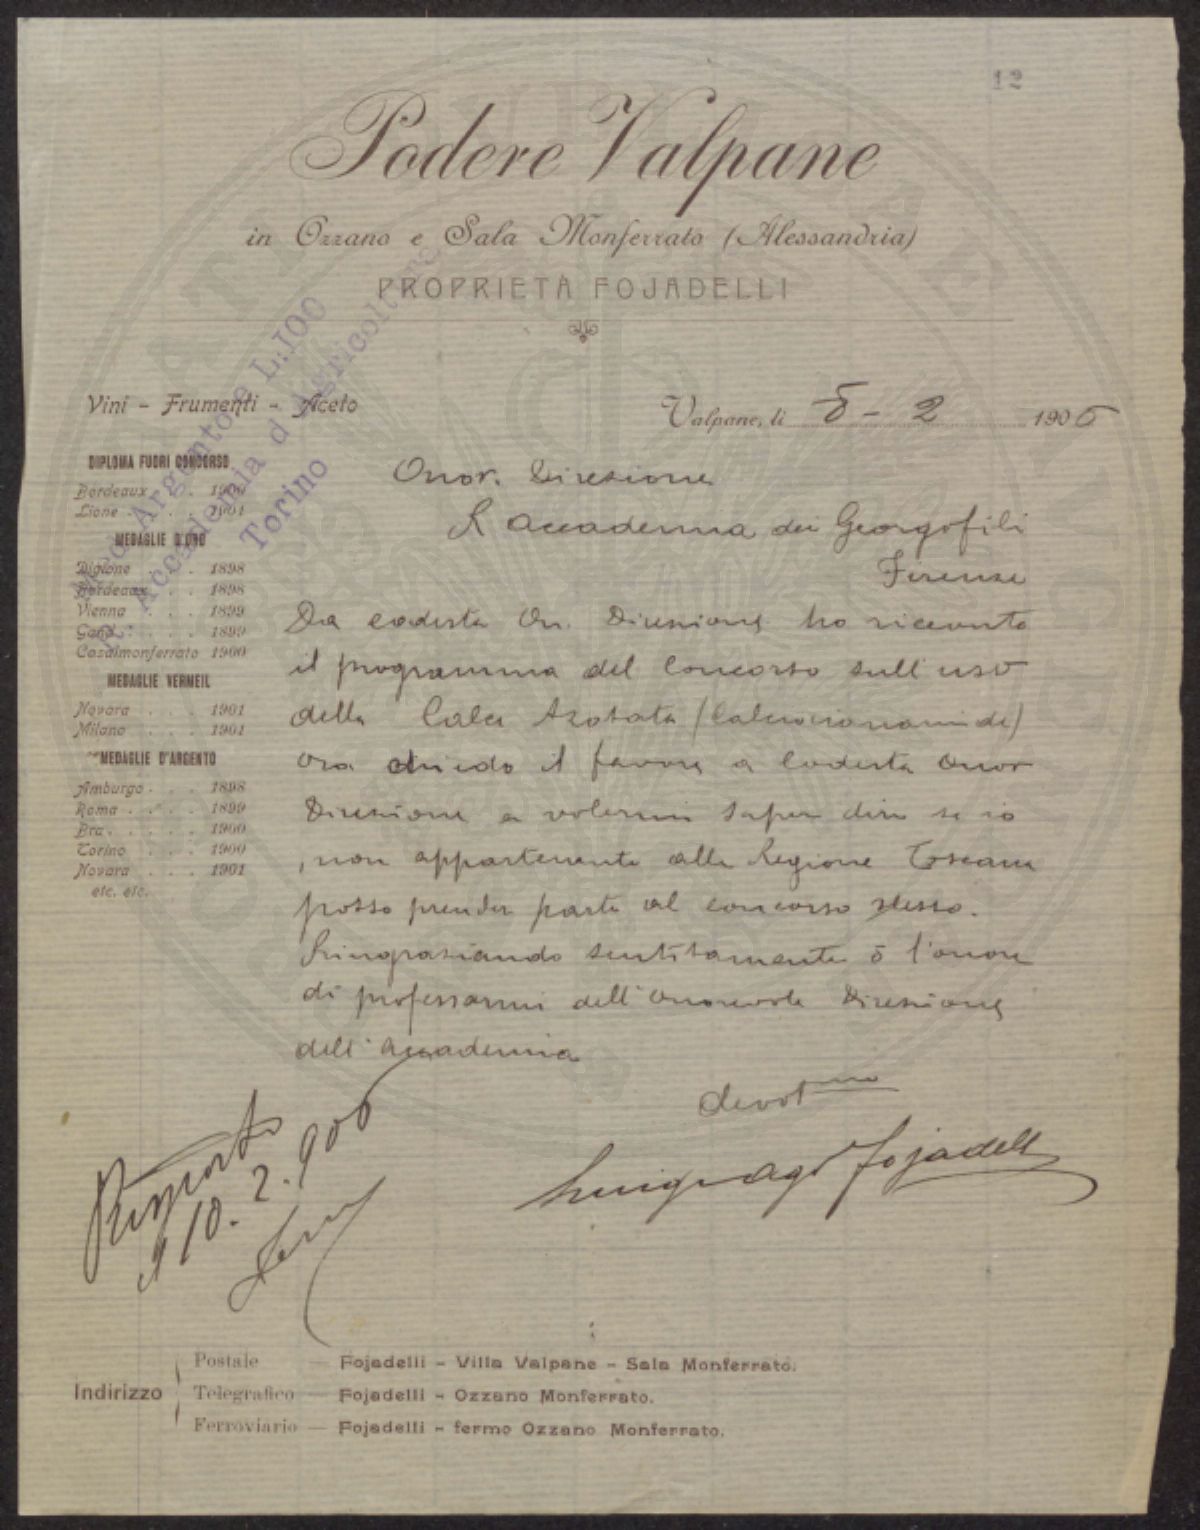 12
Podere Valpane
in Ozzano e Sala Monferrato (Alessandria)
PROPRIETÀ FOJADELLI
Med. Argento e L.100
R. Accademia d'Agricoltura
Torino
Vini - Frumenti - Aceto
Valpane, li 8 - 2 1906
DIPLOMA FUORI CONCORSO
Bordeaux . . 1900
Lione . . . . 1901
MEDAGLIE D'ORO
Digione . . . 1898
Bordeaux . . 1898
Vienna . . . 1899
Gand . . . . 1899
Casalmonferrato 1900
MEDAGLIE VERMEIL
Novara . . . 1901
Milano . . . 1901
MEDAGLIE D'ARGENTO
Amburgo . . . 1898
Roma . . . . 1899
Bra . . . . . 1900
Torino . . . 1900
Novara . . . 1901
etc. etc.
Onor. Direzione
R Accademia dei Georgofili
Firenze
Da codesta On. Direzione ho ricevuto
il programma del Concorso sull'uso
della Calce Azotata (Calciocianamide)
Ora chiedo il favore a Codesta Onor
Direzione a volermi saper dire se io
, non appartenente alla Regione Toscana
posso prender parte al concorso stesso.
Ringraziando sentitamente ò l'onore
di professarmi dell'Onorevole Direzione
dell'Accademia
devot mo
Fojadelli
Risposto
il 10.2.906
Indirizzo
Postale — Fojadelli - Villa Valpane - Sala Monferrato.
Telegrafico — Fojadelli - Ozzano Monferrato.
Ferroviario — Fojadelli - fermo Ozzano Monferrato.